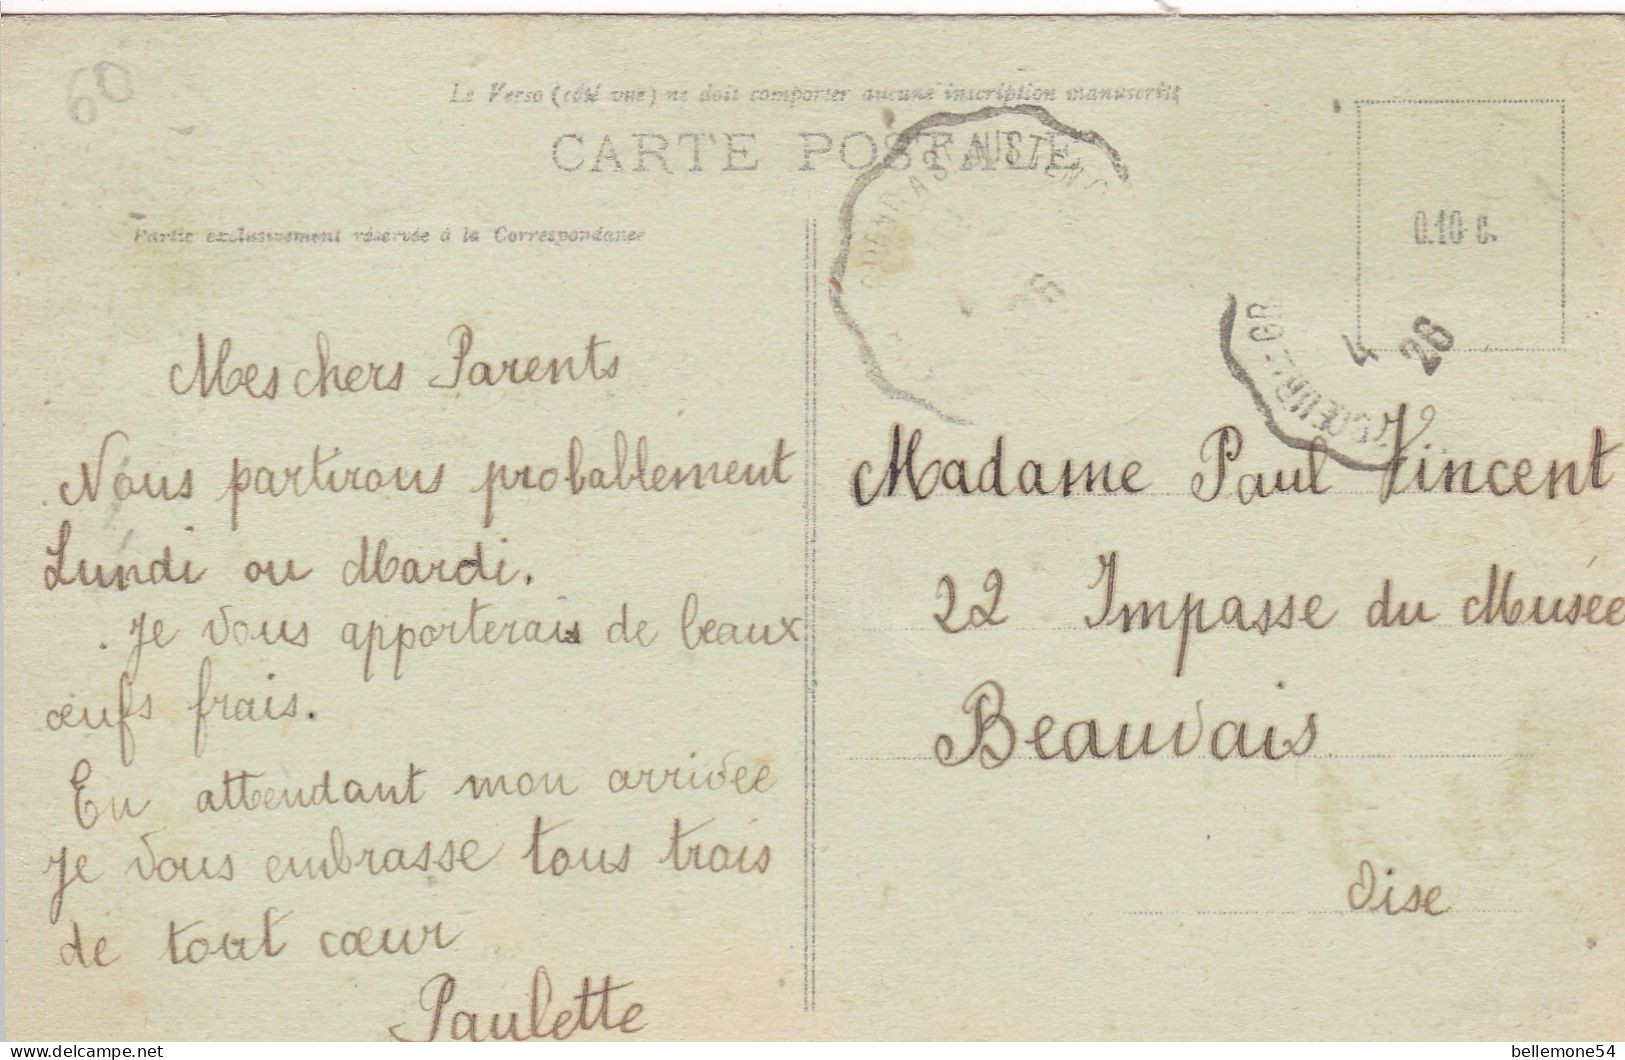 60
Le Verso (côté vue) ne doit comporter aucune inscription manuscrite
CARTE POSTALE
Partie exclusivement réservée à la Correspondance
0.10 c.
4
26
Mes chers Parents
Nous partirons probablement
Lundi ou Mardi.
Je vous apporterais de beaux
œufs frais.
En attendant mon arrivée
je vous embrasse tous trois
de tout cœur
Paulette
Madame Paul Vincent
22 Impasse du Musée
Beauvais
Oise
delcampe.net
bellemone54